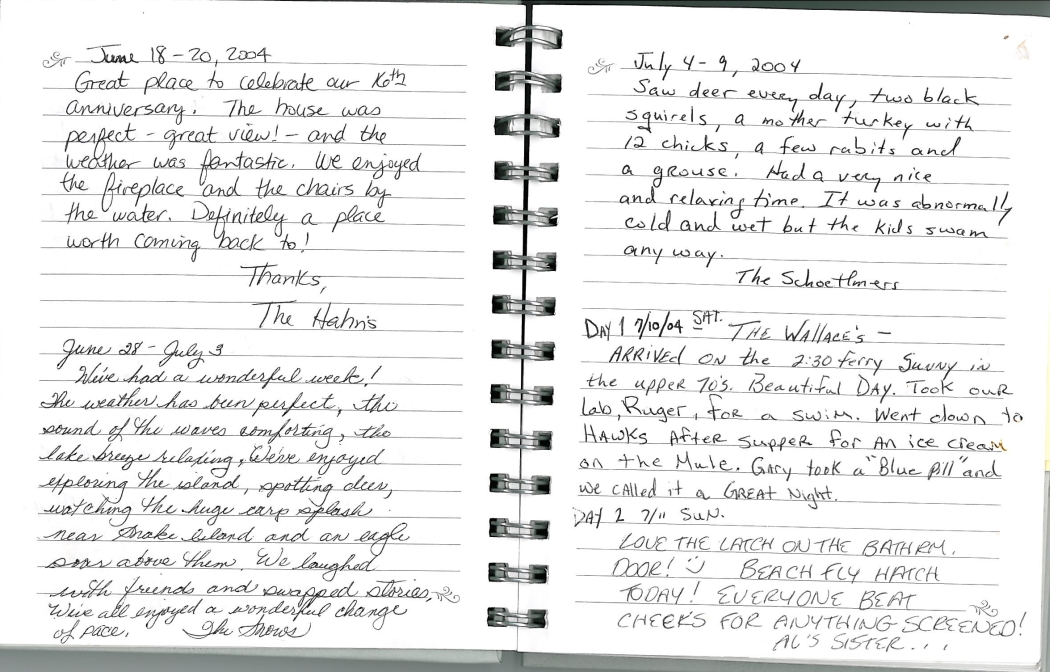 June 18 - 20, 2004
Great place to celebrate our 16th
anniversary. The house was
perfect - great view! - and the
weather was fantastic. We enjoyed
the fireplace and the chairs by
the water. Definitely a place
worth coming back to!
Thanks,
The Hahn's
June 28 - July 3
We've had a wonderful week!
The weather has been perfect, the
sound of the waves comforting, the
lake breeze relaxing. We've enjoyed
exploring the island, spotting deer,
watching the huge carp splash
near Snake Island and an eagle
soar above them. We laughed
with friends and swapped stories.
We've all enjoyed a wonderful change
of pace. The Snows
July 4 - 9, 2004
Saw deer every day, two black
squirels, a mother turkey with
12 chicks, a few rabits and
a grouse. Had a very nice
and relaxing time. It was abnormally
cold and wet but the kids swam
any way.
The Schoettmers
DAY 1 7/10/04 SAT. THE WALLACE'S -
ARRIVED ON the 2:30 ferry SUNNY in
the upper 70's. Beautiful DAY. Took our
Lab, Ruger, for a swim. Went down to
HAWKS After supper for An ice cream
on the Mule. Gary took a "Blue Pill" and
we CAlled it a GREAT Night.
DAY 2 7/11 SUN.
LOVE THE LATCH ON THE BATHRM.
DOOR! BEACH FLY HATCH
TODAY! EVERYONE BEAT
CHEEKS FOR ANYTHING SCREENED!
AL'S SISTER...